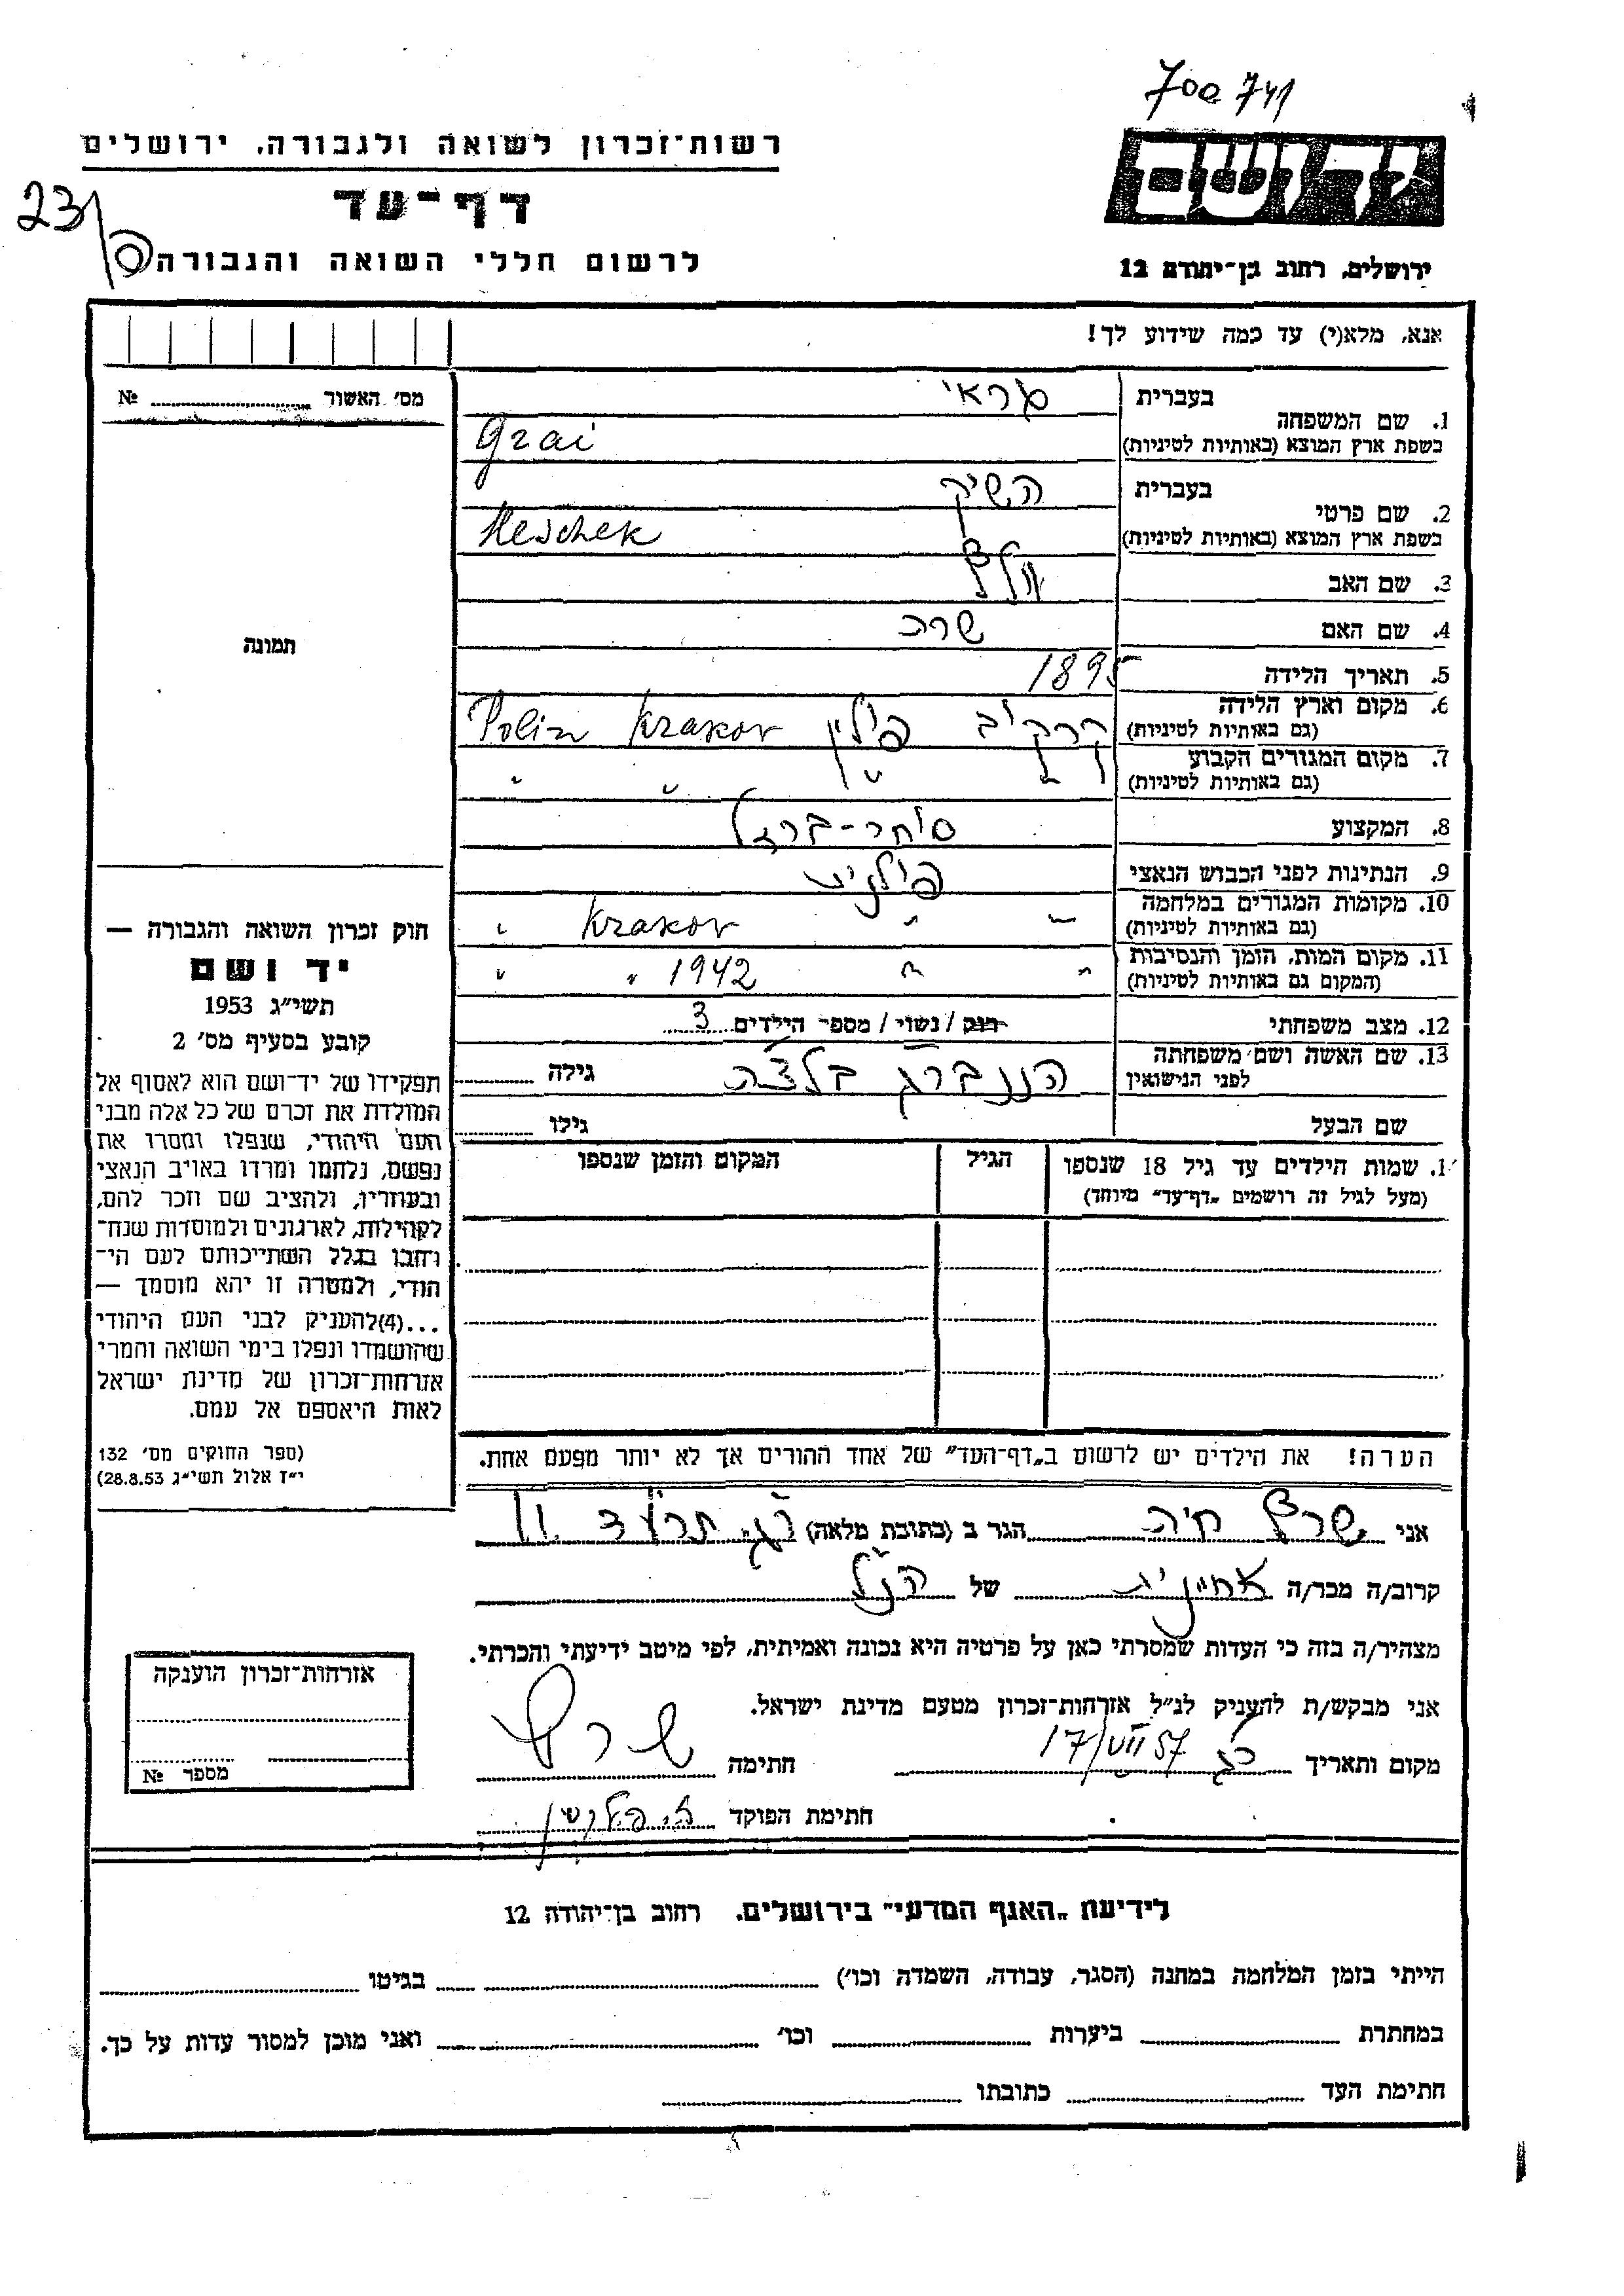 700741
רשות־זכרון לשואה ולגבורה, ירושלים
יד ושם
23/
דף־עד
לרשום חללי השואה והגבורה
ירושלים, רחוב בן־יהודה 12
אנא, מלא(י) עד כמה שידוע לך!
מס׳ האשור № 
1. שם המשפחה
בעברית גראי
בשפת ארץ המוצא (באותיות לטיניות) Grai
2. שם פרטי
בעברית השיק
בשפת ארץ המוצא (באותיות לטיניות) Heschek
3. שם האב
4. שם האם שרה
תמונה
5. תאריך הלידה 1895
6. מקום וארץ הלידה
(גם באותיות לטיניות) קרקוב פולין Krakov Polin
7. מקום המגורים הקבוע
(גם באותיות לטיניות) " " " "
8. המקצוע סוחר-ברזל
9. הנתינות לפני הכבוש הנאצי פולנית
10. מקומות המגורים במלחמה
(גם באותיות לטיניות) " " Krakov "
11. מקום המות, הזמן והנסיבות
(המקום גם באותיות לטיניות) " " 1942 " "
12. מצב משפחתי רוק / נשוי / מספר הילדים 3
13. שם האשה ושם משפחתה
לפני הנישואין גילה
שם הבעל גילו
1. שמות הילדים עד גיל 18 שנספו
(מעל לגיל זה רושמים „דף־עד״ מיוחד)
הגיל
המקום והזמן שנספו
חוק זכרון השואה והגבורה —
יד ושם
תשי״ג 1953
קובע בסעיף מס׳ 2
תפקידו של יד־ושם הוא לאסוף אל
המולדת את זכרם של כל אלה מבני
העם היהודי, שנפלו ומסרו את
נפשם, נלחמו ומרדו באויב הנאצי
ובעוזריו, ולהציב שם וזכר להם,
לקהילות, לארגונים ולמוסדות שנח־
רחבו בגלל השתייכותם לעם הי־
הודי, ולמטרה זו יהא מוסמך —
...(4)להעניק לבני העם היהודי
שהושמדו ונפלו בימי השואה והמרי
אזרחות־זכרון של מדינת ישראל
לאות היאספם אל עמם.
(ספר החוקים מס׳ 132
י״ז אלול תשי״ג 28.8.53)
הערה! את הילדים יש לרשום ב„דף־העד״ של אחד ההורים אך לא יותר מפעם אחת.
אני שרץ חיה הגר ב (כתובת מלאה) ר״ג, תרע״ד 11
קרוב/ה מכר/ה אחינית של הנ״ל
מצהיר/ה בזה כי העדות שמסרתי כאן על פרטיה היא נכונה ואמיתית, לפי מיטב ידיעתי והכרתי.
אני מבקש/ת להעניק לנ״ל אזרחות־זכרון מטעם מדינת ישראל.
מקום ותאריך ר״ג 17/VII 57 חתימה שרץ
חתימת הפוקד
אזרחות־זכרון הוענקה
מספר №
לידיעת „האגף המדעי״ בירושלים. רחוב בן־יהודה 12
הייתי בזמן המלחמה במחנה (הסגר, עבודה, השמדה וכו׳) בגיטו
במחתרת ביערות וכו׳ ואני מוכן למסור עדות על כך.
חתימת העד כתובתו